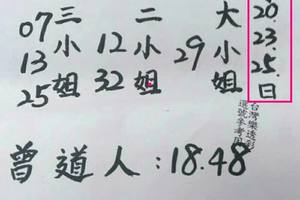 20.23.25.日
台灣樂透彩
選號參考用
大小姐
29
二小姐
12
32
三小姐
07
13
25
曾道人:18.48